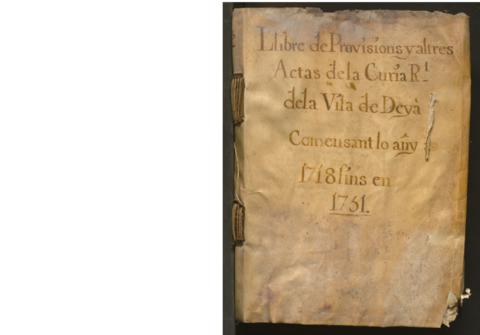 Llibre de Provisions y altres
Actas de la Curia Rl
de la Vila de Deyà
Comensant lo añy
1718 fins en
1731.